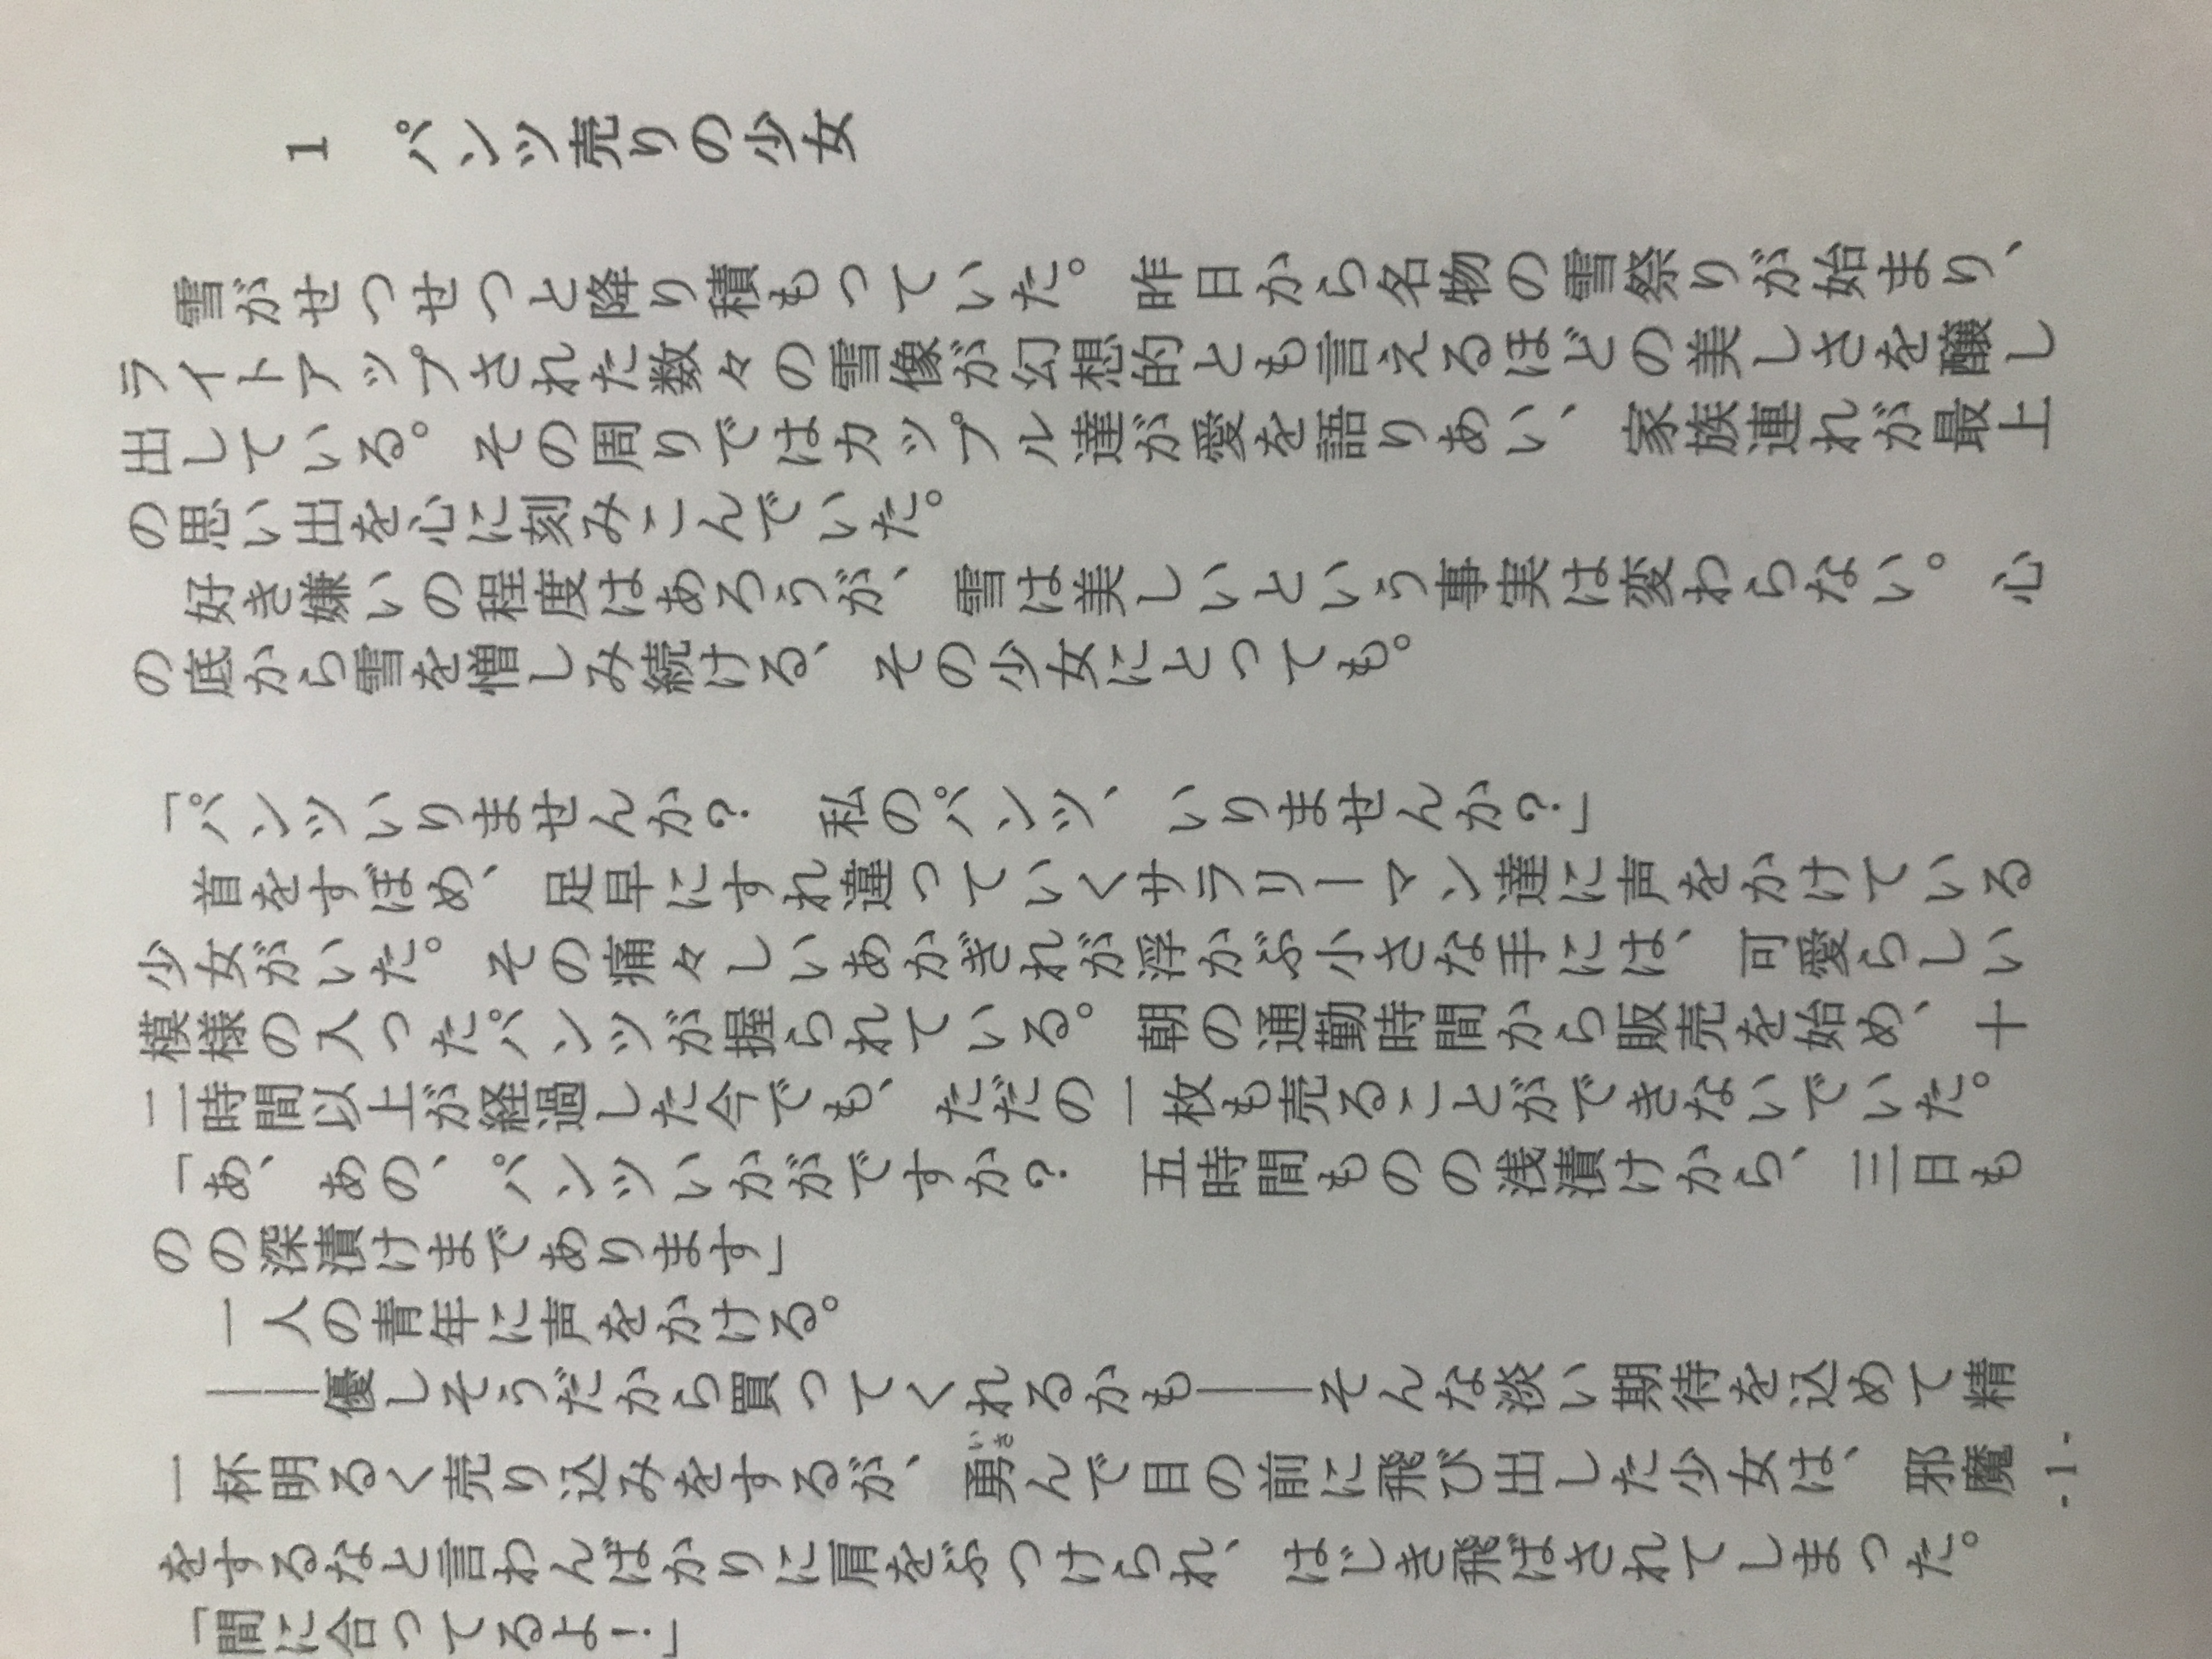 1 パンツ売りの少女
雪がせつせつと降り積もっていた。昨日から名物の雪祭りが始まり、
ライトアップされた数々の雪像が幻想的とも言えるほどの美しさを醸し
出している。その周りではカップル達が愛を語りあい、家族連れが最上
の思い出を心に刻みこんでいた。
好き嫌いの程度はあろうが、雪は美しいという事実は変わらない。心
の底から雪を憎しみ続ける、その少女にとっても。
「パンツいりませんか? 私のパンツ、いりませんか?」
首をすぼめ、足早にすれ違っていくサラリーマン達に声をかけている
少女がいた。その痛々しいあかぎれが浮かぶ小さな手には、可愛らしい
模様の入ったパンツが握られている。朝の通勤時間から販売を始め、十
二時間以上が経過した今でも、ただの一枚も売ることができないでいた。
「あ、あの、パンツいかがですか? 五時間ものの浅漬けから、三日も
のの深漬けまであります」
一人の青年に声をかける。
――優しそうだから買ってくれるかも――そんな淡い期待を込めて精
一杯明るく売り込みをするが、勇いさんで目の前に飛び出した少女は、邪魔
をするなと言わんばかりに肩をぶつけられ、はじき飛ばされてしまった。
「間に合ってるよ!」
-1-